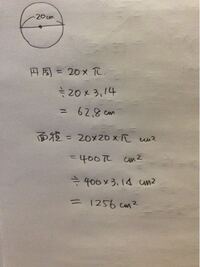 20cm
円周 = 20×π
≒20×3,14
= 62,8cm
面積 = 20×20×π cm²
= 400π cm²
≒400×3,14 cm²
= 1256 cm²